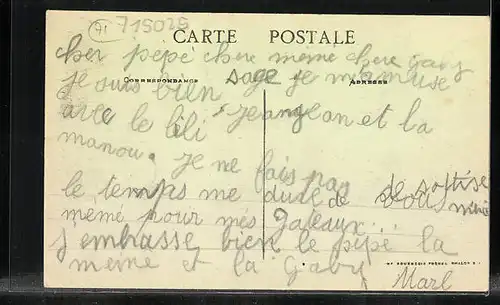 71
715025
CARTE POSTALE
cher pepé chere memé chere gaby
CORRESPONDANCE
ADRESSE
je suis bien sage je mamuse
avec le lili jeanjean et la
manou. je ne fais pas
de sottise
le temps me dure de vous
memé pour mes gateaux...
j'embrasse bien le pépé la
meme et la Gaby
Marl